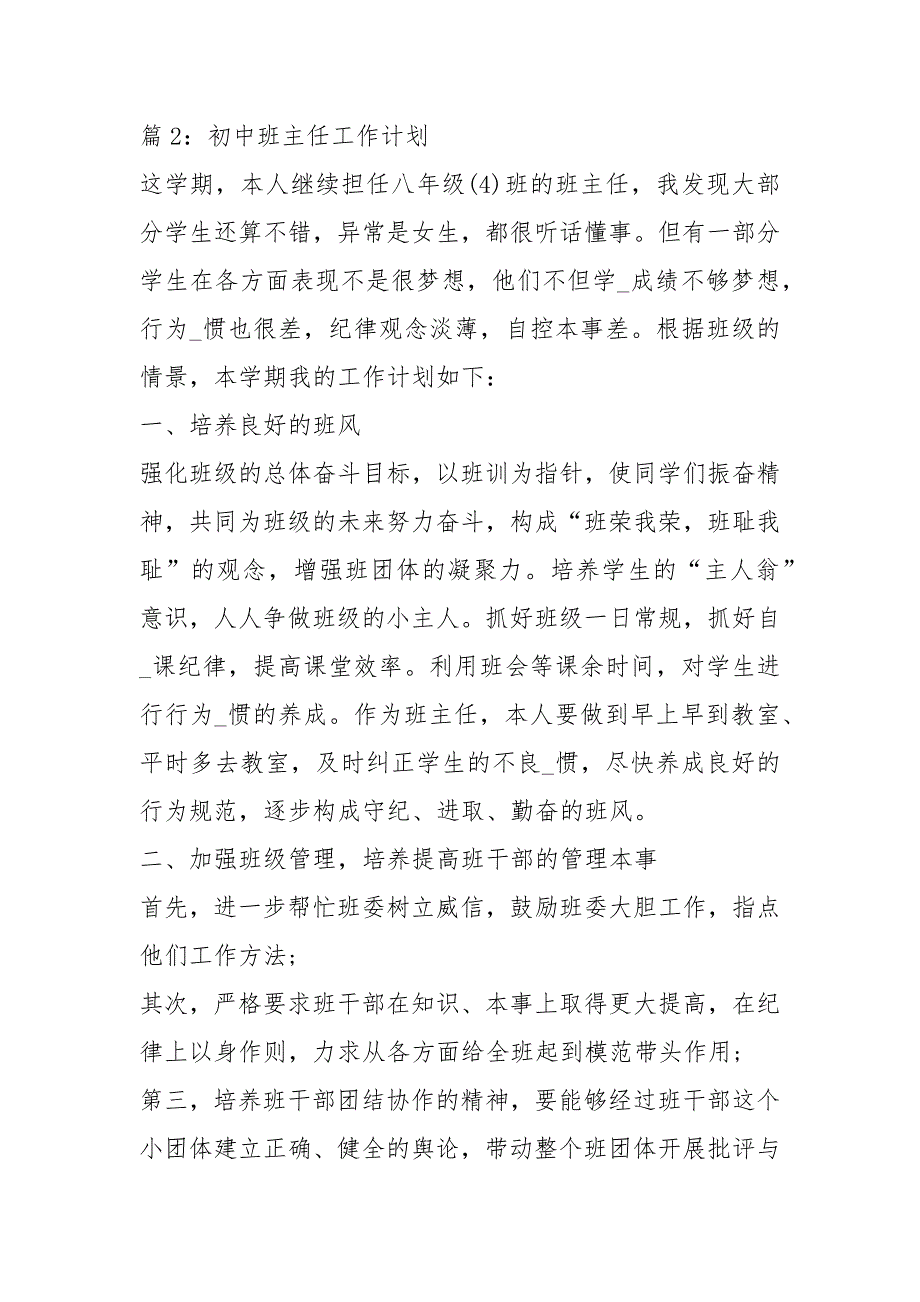 篇2：初中班主任工作计划
这学期，本人继续担任八年级(4)班的班主任，我发现大部
分学生还算不错，异常是女生，都很听话懂事。但有一部分
学生在各方面表现不是很梦想，他们不但学_成绩不够梦想，
行为_惯也很差，纪律观念淡薄，自控本事差。根据班级的
情景，本学期我的工作计划如下：
一、培养良好的班风
强化班级的总体奋斗目标，以班训为指针，使同学们振奋精
神，共同为班级的未来努力奋斗，构成“班荣我荣，班耻我
耻”的观念，增强班团体的凝聚力。培养学生的“主人翁”
意识，人人争做班级的小主人。抓好班级一日常规，抓好自
_课纪律，提高课堂效率。利用班会等课余时间，对学生进
行行为_惯的养成。作为班主任，本人要做到早上早到教室、
平时多去教室，及时纠正学生的不良_惯，尽快养成良好的
行为规范，逐步构成守纪、进取、勤奋的班风。
二、加强班级管理，培养提高班干部的管理本事
首先，进一步帮忙班委树立威信，鼓励班委大胆工作，指点
他们工作方法;
其次，严格要求班干部在知识、本事上取得更大提高，在纪
律上以身作则，力求从各方面给全班起到模范带头作用;
第三，培养班干部团结协作的精神，要能够经过班干部这个
小团体建立正确、健全的舆论，带动整个班团体开展批评与